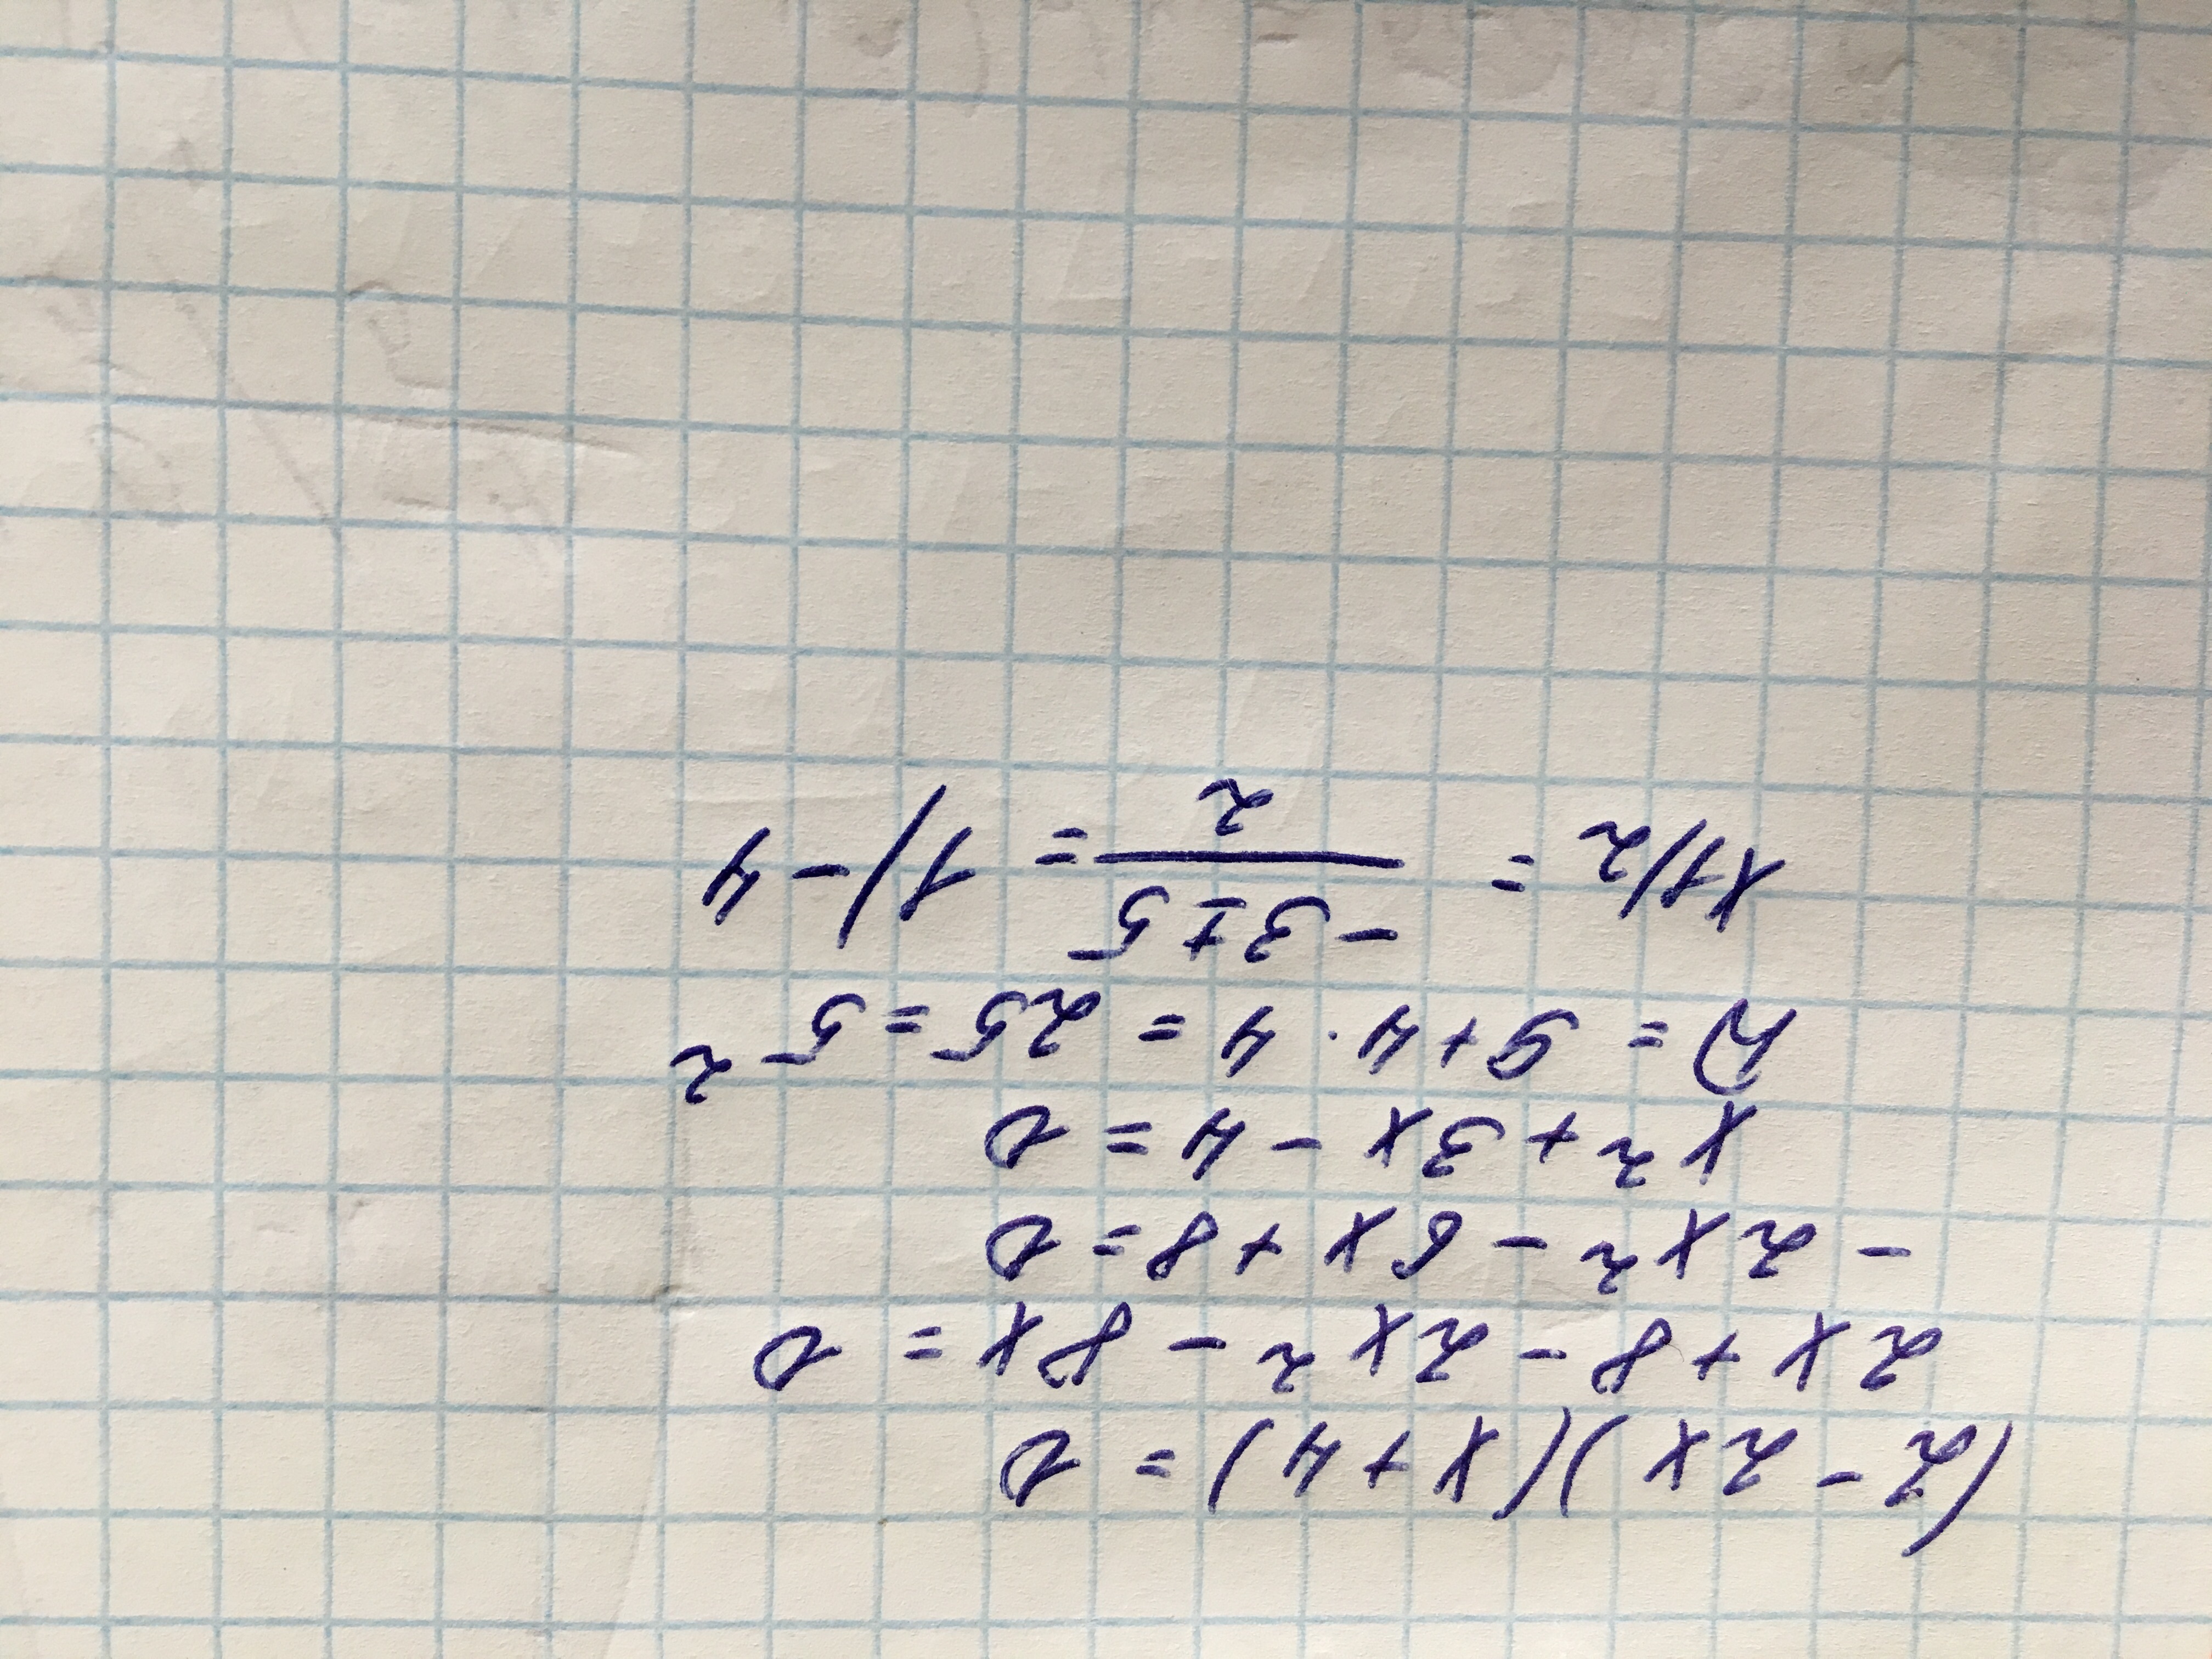 (2-2x)(x+4)=0
2x+8-2x²-8x=0
-2x²-6x+8=0
x²+3x-4=0
D=9+4·4=25=5²
x1/2 = (-3±5)/2 = 1/-4